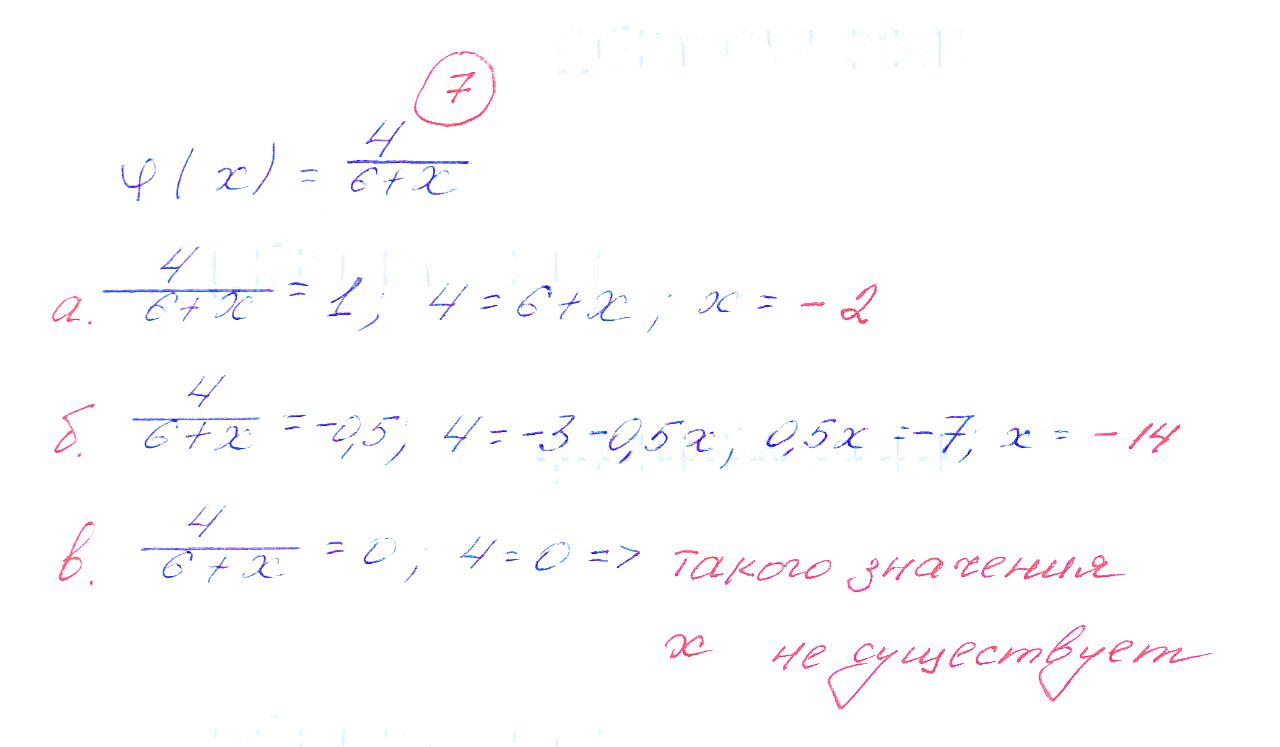 7
φ(x) = 4/(6+x)
а. 4/(6+x) = 1; 4 = 6+x; x = -2
б. 4/(6+x) = -0,5; 4 = -3 -0,5x; 0,5x = -7; x = -14
в. 4/(6+x) = 0; 4 = 0 => такого значения
x не существует